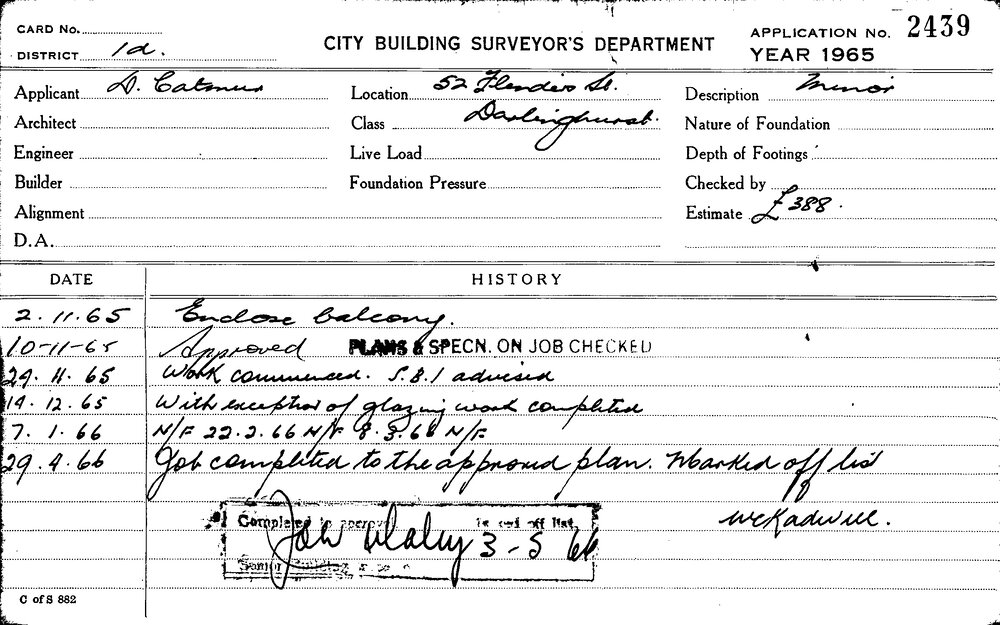 CARD No.
DISTRICT 1d.
CITY BUILDING SURVEYOR'S DEPARTMENT
APPLICATION No. 2439
YEAR 1965
Applicant D. Catmur
Location 52 Flinders St.
Description Minor
Architect
Class Darlinghurst.
Nature of Foundation
Engineer
Live Load
Depth of Footings
Builder
Foundation Pressure
Checked by
Alignment
Estimate £388.
D.A.
DATE HISTORY
2.11.65 Enclose balcony.
10-11-65 Approved PLANS & SPECN. ON JOB CHECKED
29.11.65 Work commenced. S.B.I advised
14.12.65 With exception of glazing work completed
7.1.66 N/F 22.2.66 N/F 8.3.66 N/F
29.4.66 Job completed to the approved plan. Marked off list
Completed to off list
3-5 66
Senior Building
C of S 882